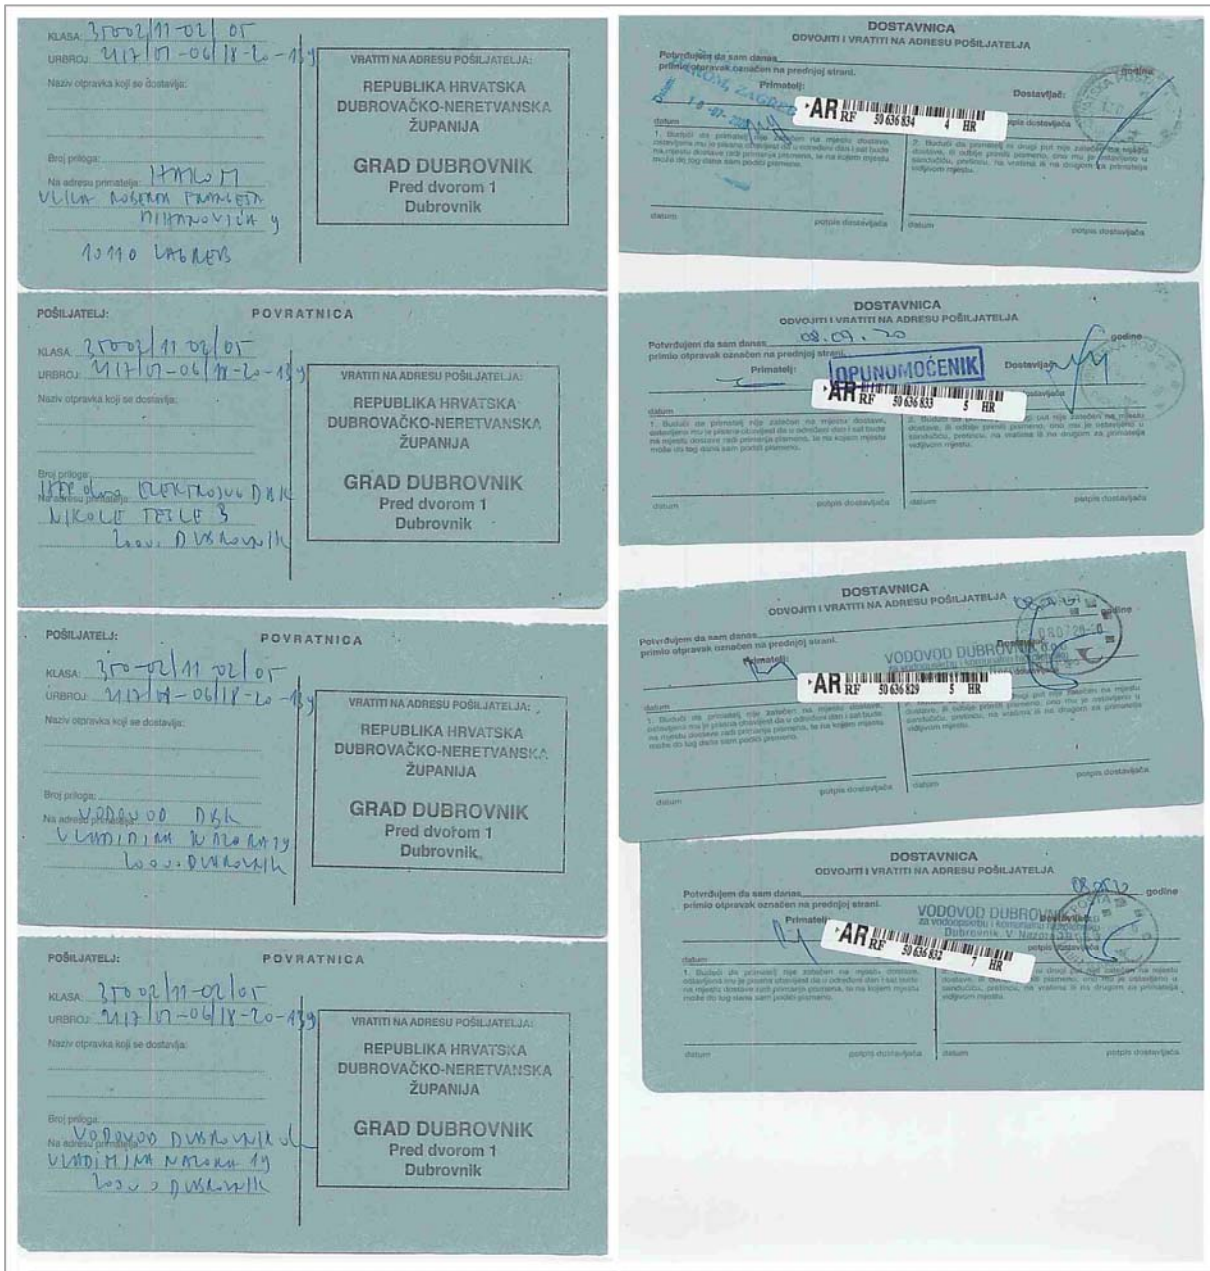 KLASA: 35002/11-02/05
URBROJ: 2117/01-06/18-20-139
Naziv otpravka koji se dostavlja:
Broj priloga:
Na adresu primatelja: HAKOM
ULICA ROBERTA FRANGEŠA
MIHANOVIĆA 9
10110 ZAGREB
VRATITI NA ADRESU POŠILJATELJA:
REPUBLIKA HRVATSKA
DUBROVAČKO-NERETVANSKA
ŽUPANIJA
GRAD DUBROVNIK
Pred dvorom 1
Dubrovnik
POŠILJATELJ:
POVRATNICA
KLASA: 35002/11-02/05
URBROJ: 2117/01-06/18-20-139
Naziv otpravka koji se dostavlja:
Broj priloga:
Na adresu primatelja:
HEP ELEKTROJUG DBK
NIKOLE TESLE 3
DUBROVNIK
VRATITI NA ADRESU POŠILJATELJA:
REPUBLIKA HRVATSKA
DUBROVAČKO-NERETVANSKA
ŽUPANIJA
GRAD DUBROVNIK
Pred dvorom 1
Dubrovnik
POŠILJATELJ:
POVRATNICA
KLASA: 350-02/11-02/05
URBROJ: 2117/01-06/18-20-139
Naziv otpravka koji se dostavlja:
Broj priloga:
Na adresu primatelja: VODOVOD DBK
VLADIMIRA NAZORA 19
DUBROVNIK
VRATITI NA ADRESU POŠILJATELJA:
REPUBLIKA HRVATSKA
DUBROVAČKO-NERETVANSKA
ŽUPANIJA
GRAD DUBROVNIK
Pred dvorom 1
Dubrovnik
POŠILJATELJ:
POVRATNICA
KLASA: 35002/11-02/05
URBROJ: 2117/01-06/18-20-139
Naziv otpravka koji se dostavlja:
Broj priloga:
Na adresu primatelja: VODOVOD DUBROVNIK
VLADIMIRA NAZORA 19
DUBROVNIK
VRATITI NA ADRESU POŠILJATELJA:
REPUBLIKA HRVATSKA
DUBROVAČKO-NERETVANSKA
ŽUPANIJA
GRAD DUBROVNIK
Pred dvorom 1
Dubrovnik
DOSTAVNICA
ODVOJITI I VRATITI NA ADRESU POŠILJATELJA
Potvrđujem da sam danas godine
primio otpravak označen na prednjoj strani.
Primatelj: Dostavljač:
HAKOM, ZAGREB
AR RF 50 636 834 4 HR
datum potpis dostavljača
1. Budući da primatelj nije zatečen na mjestu dostave,
ostavljena mu je pisana obavijest da u određeni dan i sat bude
na mjestu dostave radi primanja pismena, te na kojem mjestu
može do tog dana sam podići pismeno.
2. Budući da primatelj ni drugi put nije zatečen na mjestu
dostave, ili odbije primiti pismeno, ono mu je ostavljeno u
sandučiću, pretincu, na vratima ili na drugom za primatelja
vidljivom mjestu.
datum potpis dostavljača datum potpis dostavljača
DOSTAVNICA
ODVOJITI I VRATITI NA ADRESU POŠILJATELJA
Potvrđujem da sam danas 08.07.20 godine
primio otpravak označen na prednjoj strani.
Primatelj: OPUNOMOĆENIK Dostavljač:
AR RF 50 636 833 5 HR
datum dostavljača
1. Budući da primatelj nije zatečen na mjestu dostave,
ostavljena mu je pisana obavijest da u određeni dan i sat bude
na mjestu dostave radi primanja pismena, te na kojem mjestu
može do tog dana sam podići pismeno.
put nije zatečen na mjestu
dostave, ili odbije primiti pismeno, ono mu je ostavljeno u
sandučiću, pretincu, na vratima ili na drugom za primatelja
vidljivom mjestu.
datum potpis dostavljača datum potpis dostavljača
DOSTAVNICA
ODVOJITI I VRATITI NA ADRESU POŠILJATELJA
Potvrđujem da sam danas godine
primio otpravak označen na prednjoj strani.
Primatelj:
VODOVOD DUBROVNIK d.o.o.
za vodoopskrbu i komunalnu hidrotehniku
AR RF 50 636 829 5 HR
datum
1. Budući da primatelj nije zatečen na mjestu dostave,
ostavljena mu je pisana obavijest da u određeni dan i sat bude
na mjestu dostave radi primanja pismena, te na kojem mjestu
može do tog dana sam podići pismeno.
drugi put nije zatečen na mjestu
dostave, ili odbije primiti pismeno, ono mu je ostavljeno u
sandučiću, pretincu, na vratima ili na drugom za primatelja
vidljivom mjestu.
datum potpis dostavljača datum potpis dostavljača
DOSTAVNICA
ODVOJITI I VRATITI NA ADRESU POŠILJATELJA
Potvrđujem da sam danas godine
primio otpravak označen na prednjoj strani.
Primatelj:
VODOVOD DUBROVNIK
za vodoopskrbu i komunalnu hidrotehniku
Dubrovnik, V. Nazora 19
AR RF 50 636 832 7 HR
datum potpis dostavljača
1. Budući da primatelj nije zatečen na mjestu dostave,
ostavljena mu je pisana obavijest da u određeni dan i sat bude
na mjestu dostave radi primanja pismena, te na kojem mjestu
može do tog dana sam podići pismeno.
ni drugi put nije zatečen na mjestu
dostave, ili odbije primiti pismeno, ono mu je ostavljeno u
sandučiću, pretincu, na vratima ili na drugom za primatelja
vidljivom mjestu.
datum potpis dostavljača datum potpis dostavljača